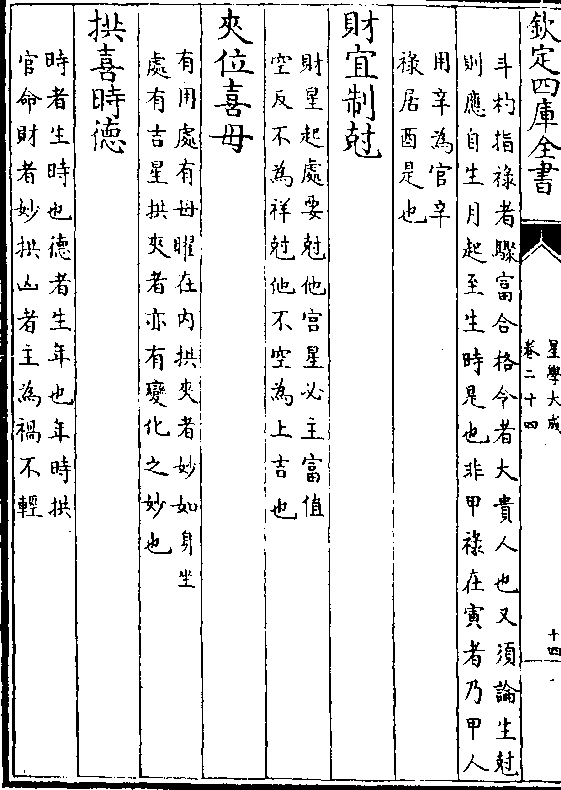 欽定四庫全書
星學大成
卷二十四
十四
斗杓指祿者驟富合格令者大貴人也又須論生尅
則應自生月起至生時是也非甲祿在寅者乃甲人
用辛為官辛
祿居酉是也
財宜制尅
財星起處要尅他宮星必主富值
空反不為祥尅他不空為上吉也
夾位喜母
有用處有母曜在內拱夾者妙如身坐
處有吉星拱夾者亦有變化之妙也
拱喜時德
時者生時也德者生年也年時拱
官命財者妙拱凶者主為禍不輕